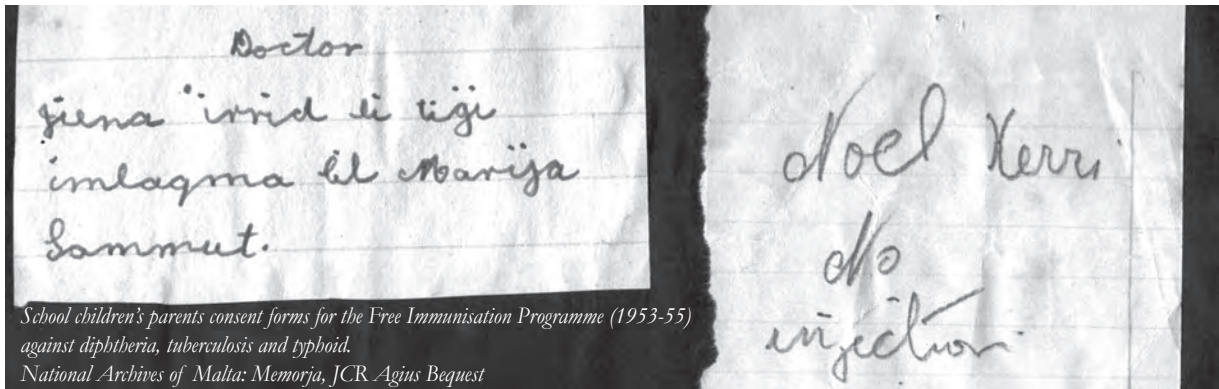 Doctor
jiena irrid li tiġi
imlaqma lil Marija
Sammut.
Noel Xerri
No
injection
School children's parents consent forms for the Free Immunisation Programme (1953-55)
against diphtheria, tuberculosis and typhoid.
National Archives of Malta: Memorja, JCR Agius Bequest